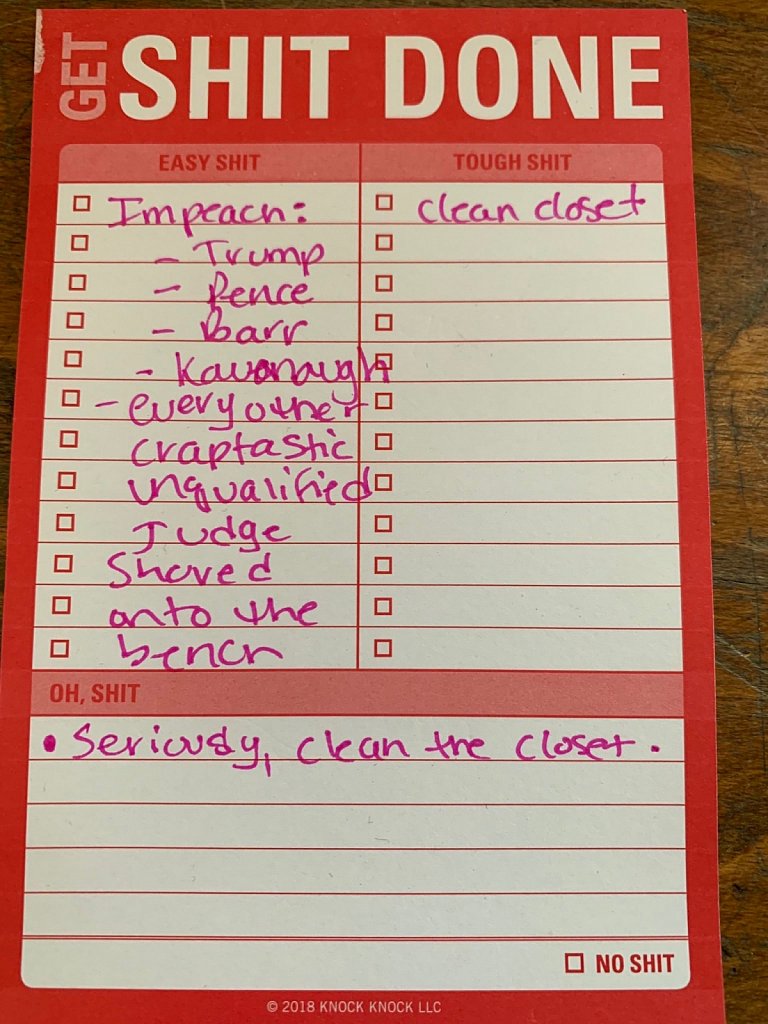 GET SHIT DONE
EASY SHIT
Impeach:
- Trump
- Pence
- Barr
- Kavanaugh
- every other
craptastic
unqualified
Judge
Shoved
onto the
bench
TOUGH SHIT
clean closet
OH, SHIT
• Seriously, clean the closet.
NO SHIT
© 2018 KNOCK KNOCK LLC